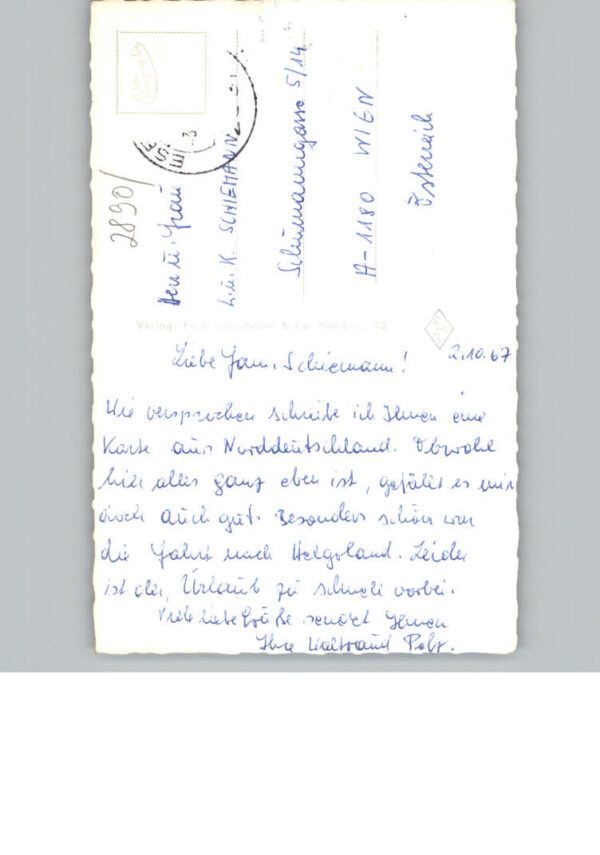 2890/
Herr u. Frau
L. u. K. SCHIEMANN
Schumanngasse 5/14
A-1180 WIEN
Österreich
Verlag & Co. Hamburg
2.10.67
Liebe Fam. Schiemann!
Wie versprochen schreibe ich Ihnen eine
Karte aus Norddeutschland. Obwohl
hier alles ganz eben ist, gefällt es mir
doch auch gut. Besonders schön war
die Fahrt nach Helgoland. Leider
ist der Urlaub zu schnell vorbei.
Viele liebe Grüße sendet Ihnen
Ihre Waltraud